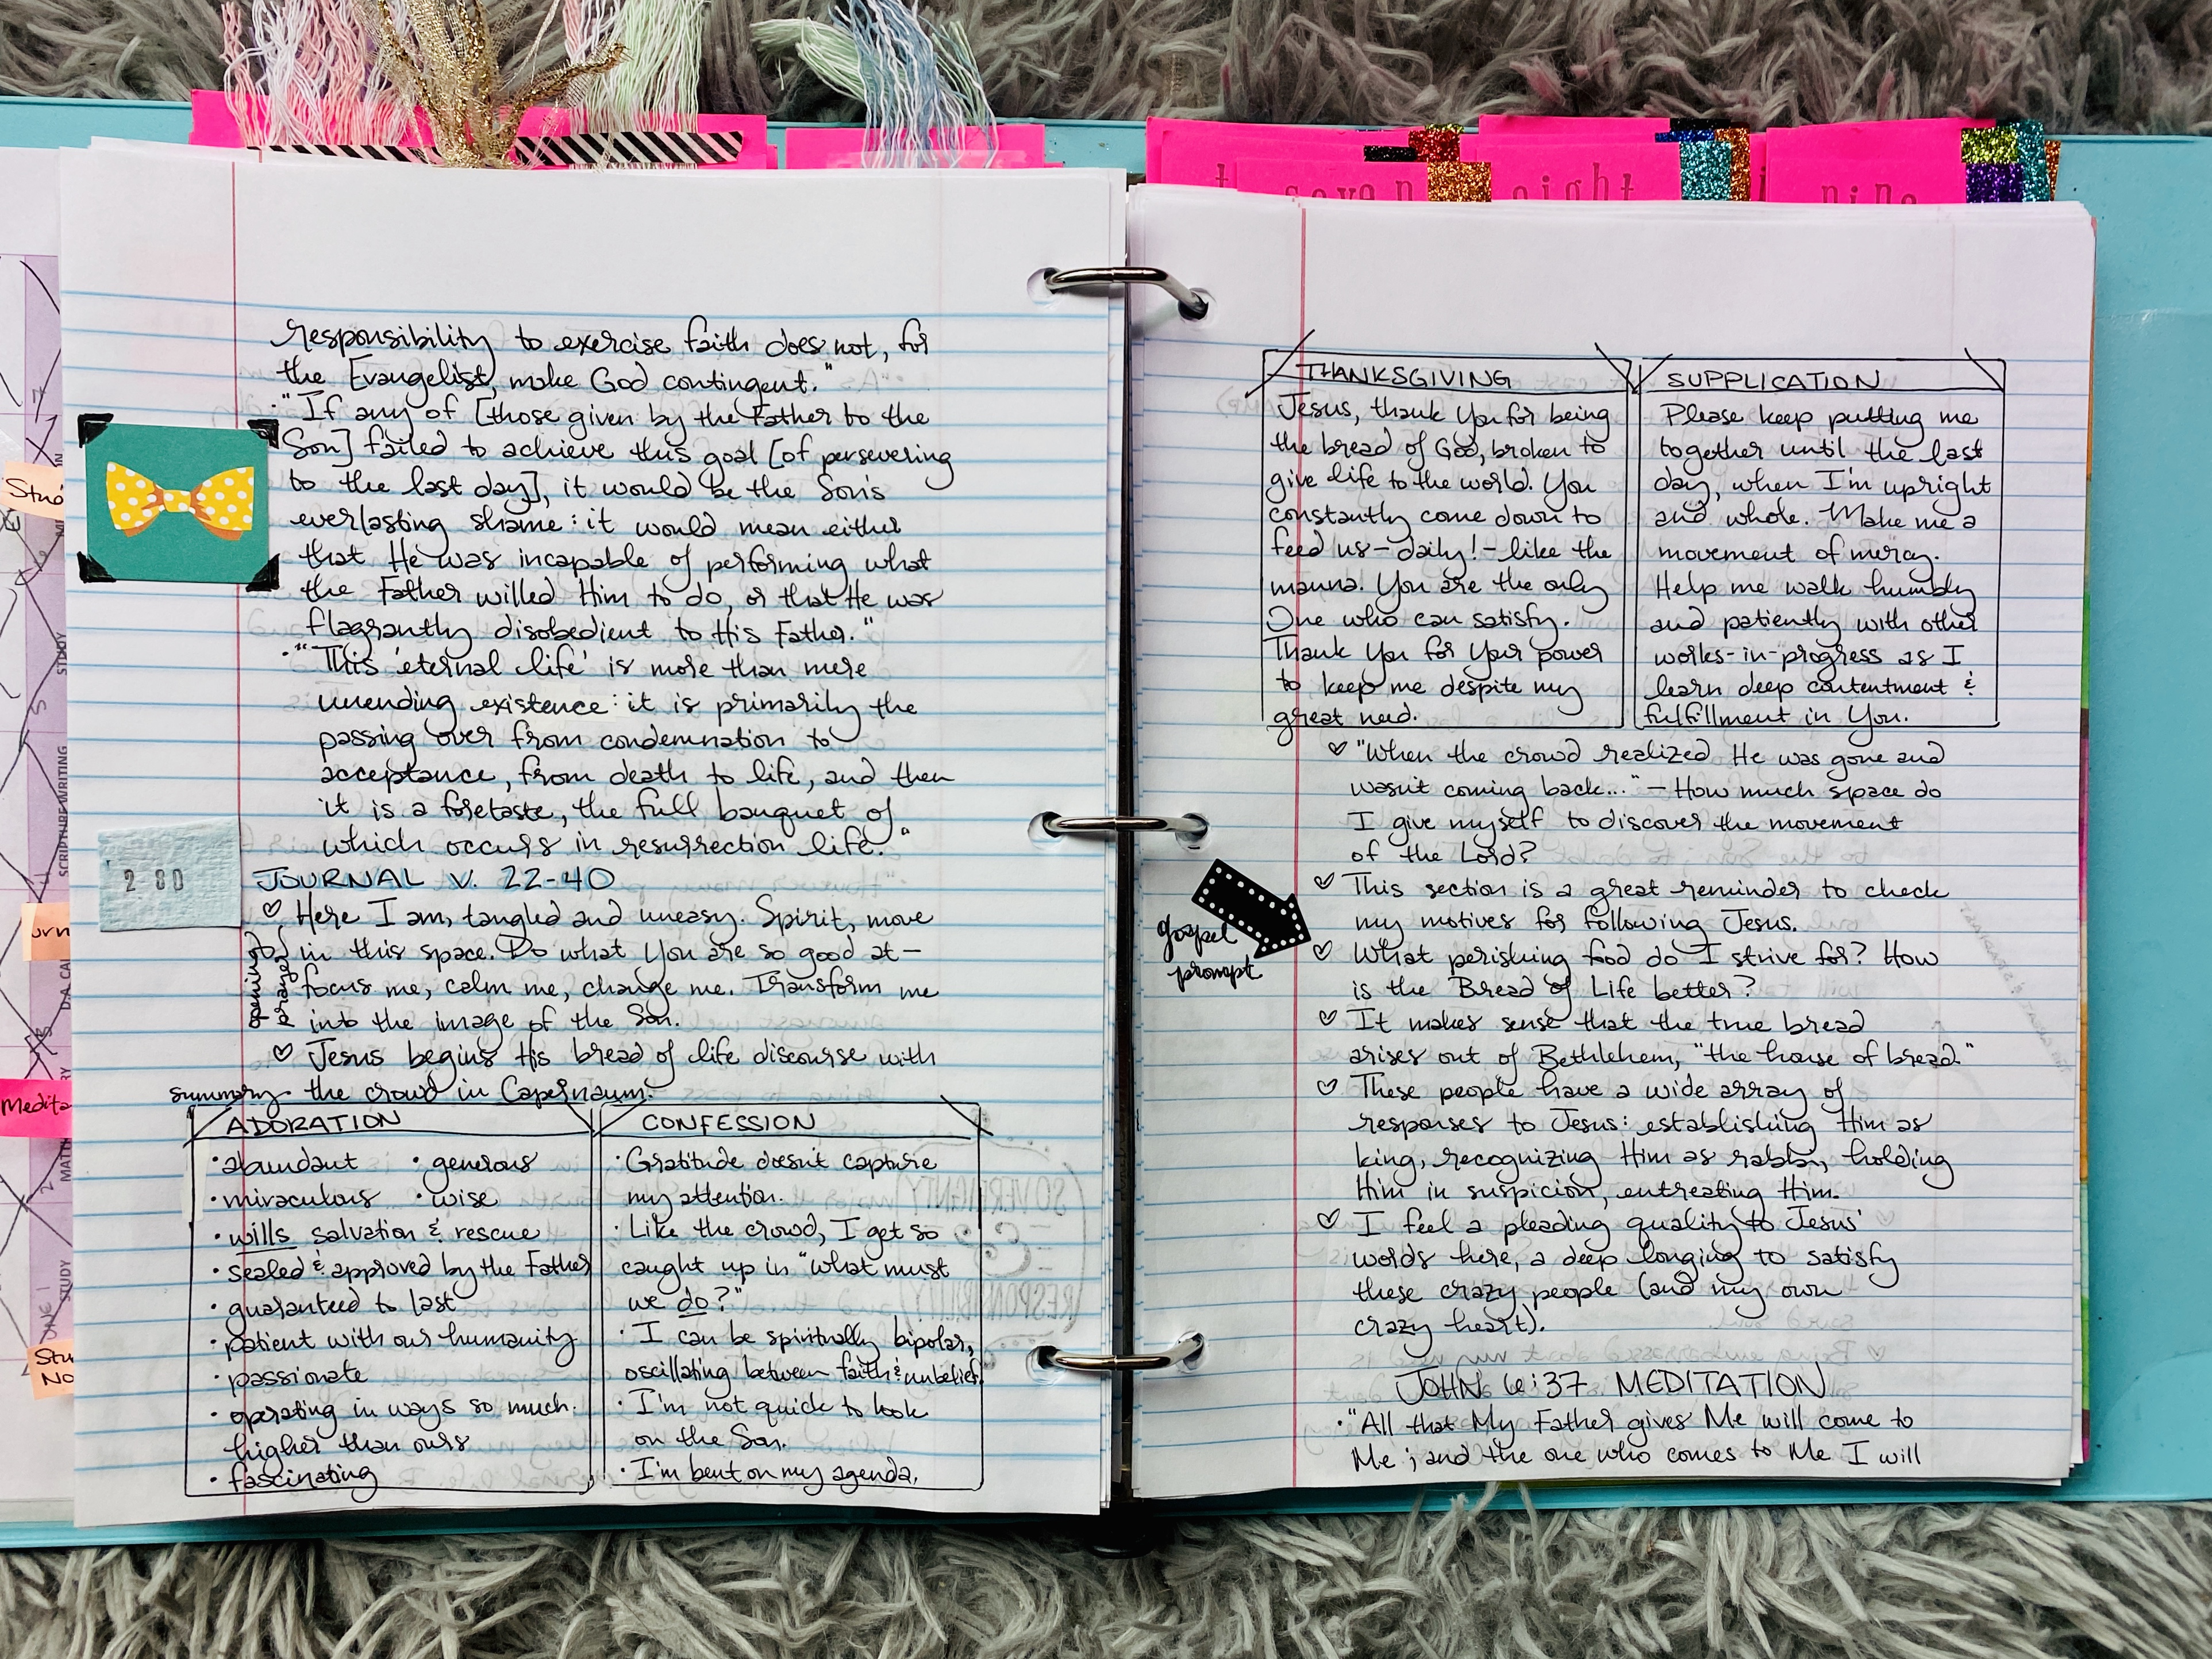 responsibility to exercise faith does not, for
the Evangelist, make God contingent."
• "If any of [those given by the Father to the
Son] failed to achieve this goal [of persevering
to the last day], it would be the Son's
everlasting shame: it would mean either
that He was incapable of performing what
the Father willed Him to do, or that He was
flagrantly disobedient to His Father."
• "This 'eternal life' is more than mere
unending existence: it is primarily the
passing over from condemnation to
acceptance, from death to life, and then
it is a foretaste, the full banquet of
which occurs in resurrection life."
2 80
JOURNAL V. 22-40
♡ Here I am, tangled and uneasy. Spirit, move
in this space. Do what You are so good at—
focus me, calm me, change me. Transform me
into the image of the Son.
opening
prayer
♡ Jesus begins His bread of life discourse with
summary the crowd in Capernaum.
ADORATION
• abundant • generous
• miraculous • wise
• wills salvation & rescue
• sealed & approved by the Father
• guaranteed to last
• patient with our humanity
• passionate
• operating in ways so much
higher than ours
• fascinating
CONFESSION
• Gratitude doesn't capture
my attention.
• Like the crowd, I get so
caught up in "what must
we do?"
• I can be spiritually bipolar,
oscillating between faith & unbelief.
• I'm not quick to look
on the Son.
• I'm bent on my agenda.
seven
eight
nine
THANKSGIVING
Jesus, thank You for being
the bread of God, broken to
give life to the world. You
constantly come down to
feed us—daily!—like the
manna. You are the only
One who can satisfy.
Thank You for Your power
to keep me despite my
great need.
SUPPLICATION
Please keep putting me
together until the last
day, when I'm upright
and whole. Make me a
movement of mercy.
Help me walk humbly
and patiently with other
works-in-progress as I
learn deep contentment &
fulfillment in You.
♡ "When the crowd realized He was gone and
wasn't coming back..." — How much space do
I give myself to discover the movement
of the Lord?
♡ This section is a great reminder to check
my motives for following Jesus.
gospel
prompt
♡ What perishing food do I strive for? How
is the Bread of Life better?
♡ It makes sense that the true bread
arises out of Bethlehem, "the house of bread."
♡ These people have a wide array of
responses to Jesus: establishing Him as
king, recognizing Him as rabbi, holding
Him in suspicion, entreating Him.
♡ I feel a pleading quality to Jesus'
words here, a deep longing to satisfy
these crazy people (and my own
crazy heart).
JOHN 6:37 MEDITATION
• "All that My Father gives Me will come to
Me; and the one who comes to Me I will
STUDY
SCRIPTURE WRITING
STUDY